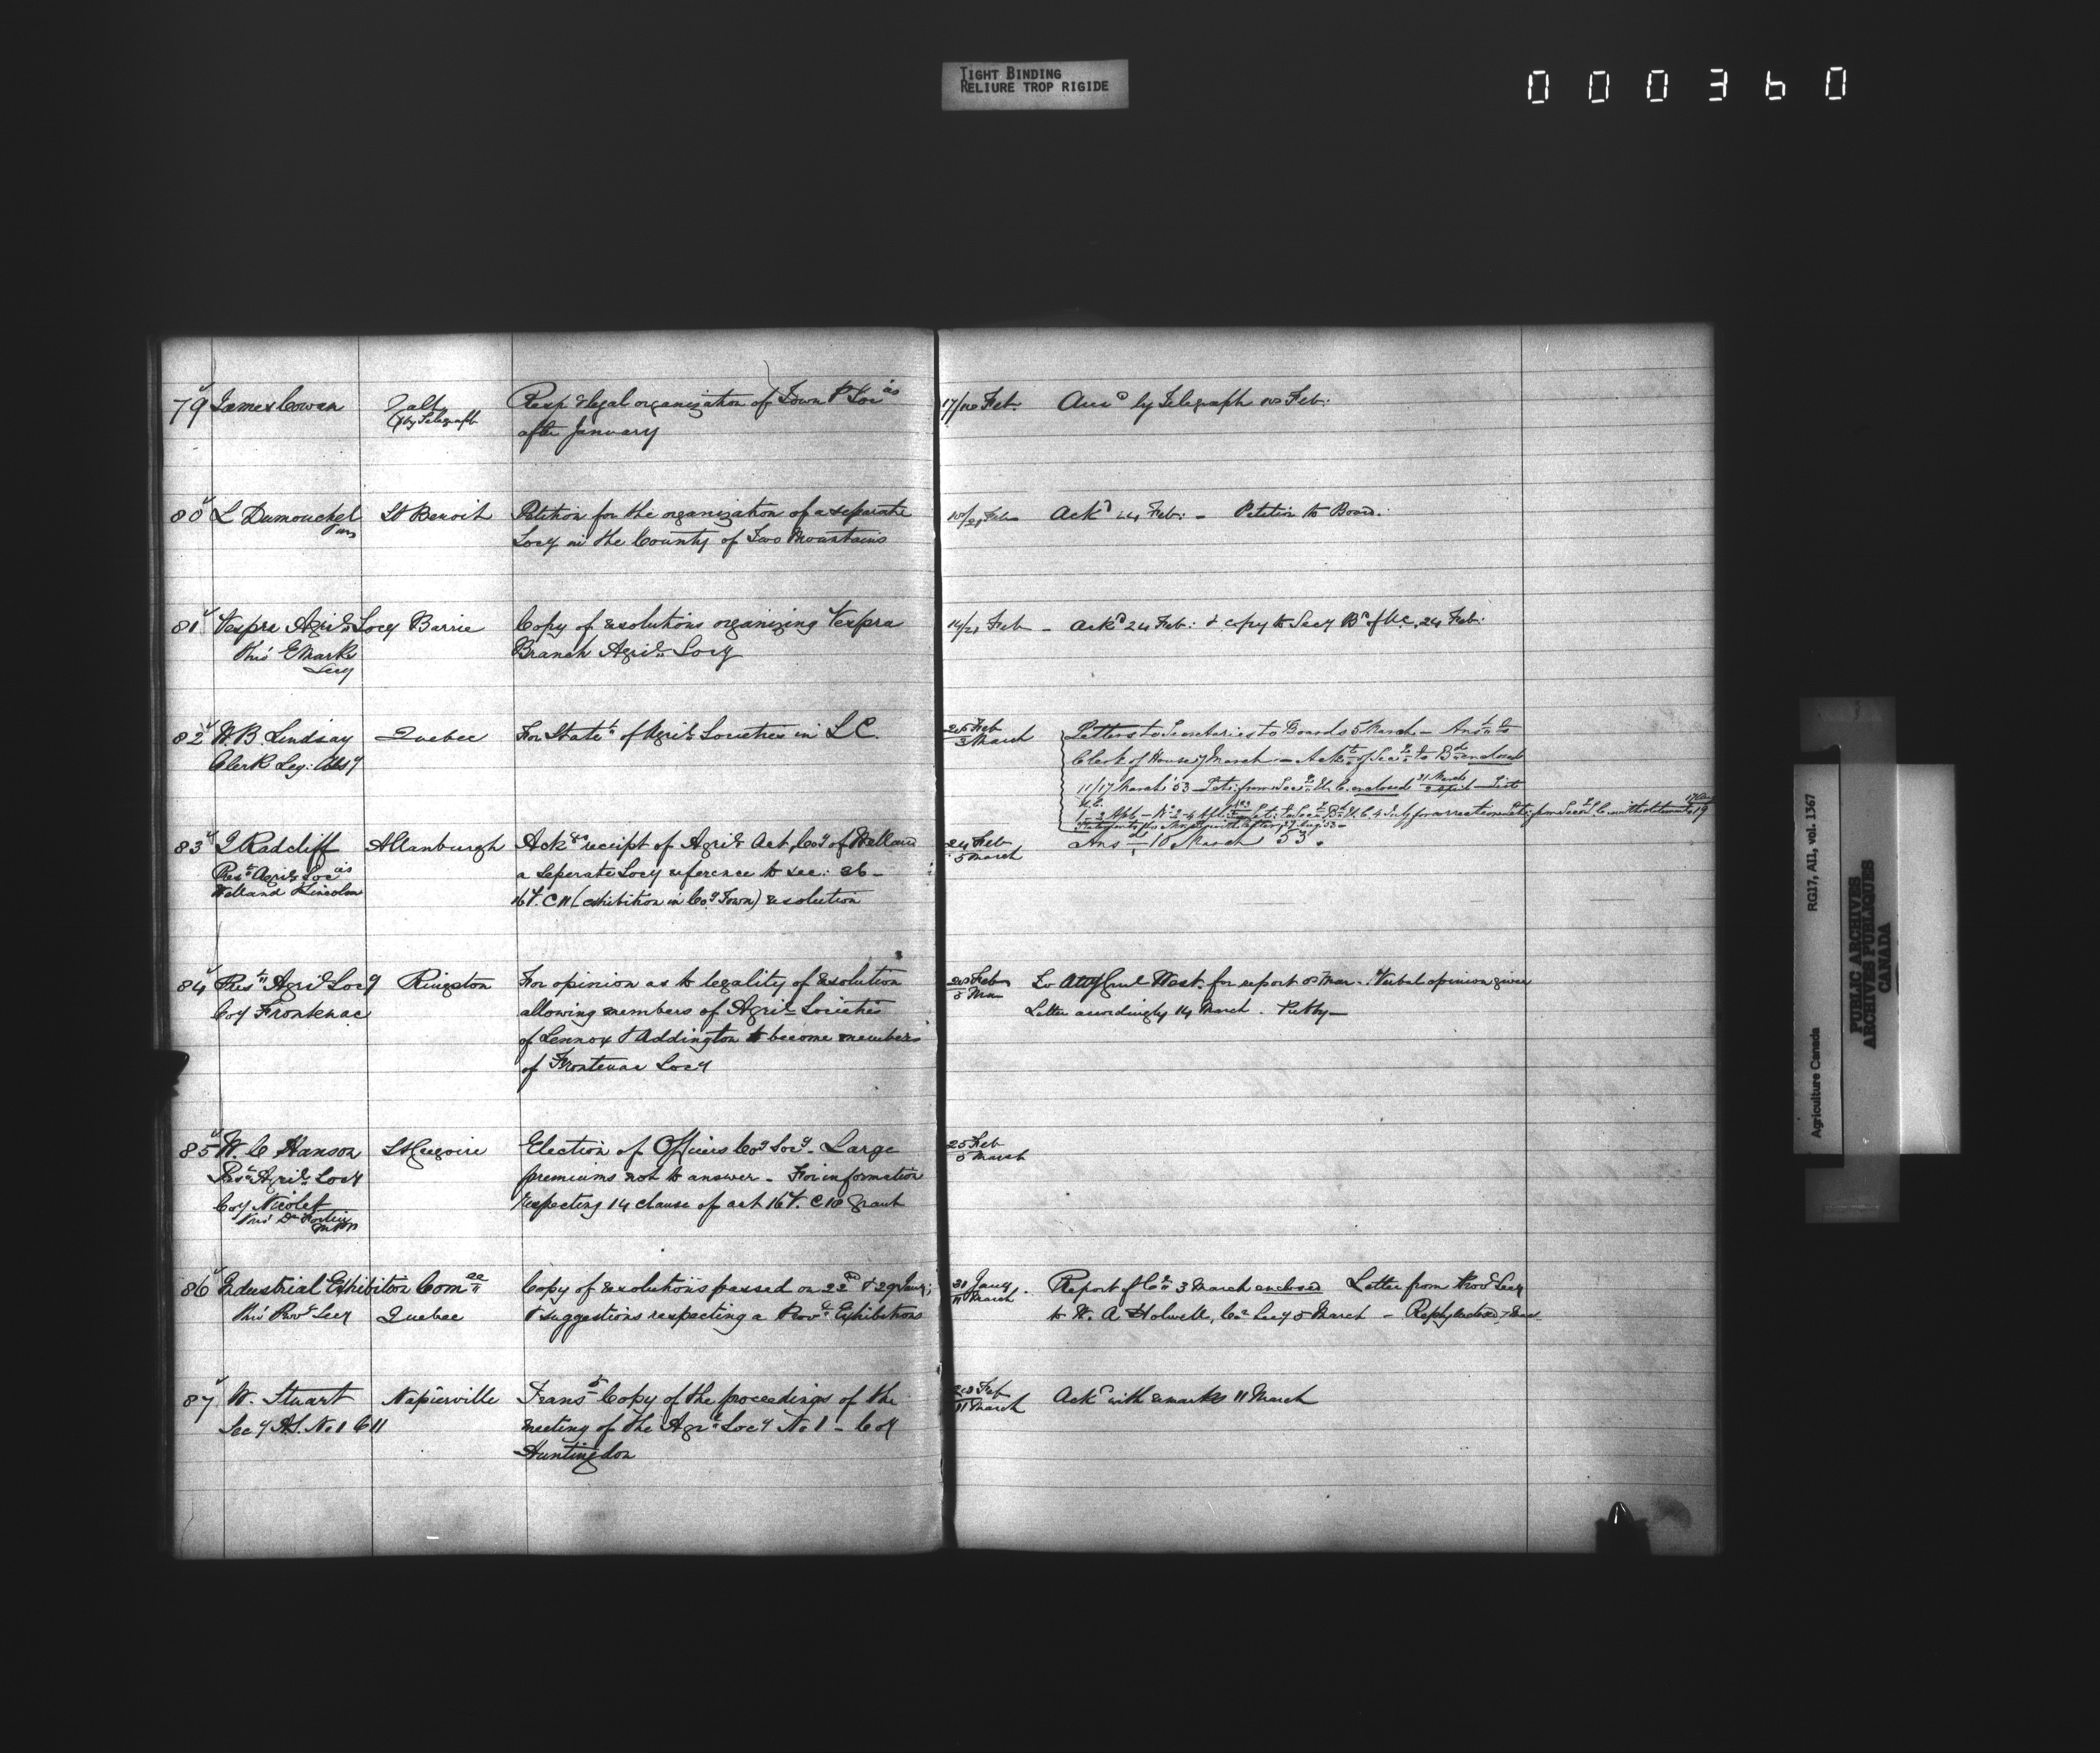 TIGHT BINDING
RELIURE TROP RIGIDE
000360
79 James Cowan
Galt
(by Telegraph
Resp legal organization of Town & Soc ies
after January
17/18 Feb.
Ans d by Telegraph 18 Feb:
80 L Dumouchel
St Benoit
Petition for the organization of a separate
Socy in the County of Two Mountains
18/21 Feb
Ack d 24 Feb: - Petition to Board.
81 Vespra Agril Socy
Barrie
thro' E Marks
Secy
Copy of resolutions organizing Vespra
Branch Agril Socy
14/21 Feb -
Ack d 24 Feb: & copy to Secy Bd of U.C. 24 Feb:
82 W. B. Lindsay
Clerk Leg: Ass y
Quebec
For State t of Agril Societies in L C.
28 Feb
3 March
Letters to Secretaries to Boards 5 March - Ans
Clerk of House 7 March - enclosed
11/17 March '53 - enclosed 31 March
83 J Radcliff
Pres t Agril Soc ies
Welland & Lincoln
Allanburgh
Ack receipt of Agril Act, Coy of Welland
a seperate Socy reference to sec: 26 -
16 V. C 11 (exhibition in Coy Town) resolution
24 Feb
5 March
Ans d 10 March 53.
84 Pres t Agril Soc y
Coy Frontenac
Kingston
For opinion as to legality of resolution
allowing members of Agril Societies
of Lennox & Addington to become members
of Frontenac Soc y
28 Feb
5 Mar
To Atty Genl West. for report 8 Mar. Verbal opinion given
Letter accordingly 14 March.
85 W. C Hanson
Pres t Agril Soc y
Coy Nicolet
thro' Dr Fortier
MPP
St Gregoire
Election of Officers Coy Soc y. Large
premiums not to answer - For information
respecting 14 clause of act 16 V. C 18 grant
25 Feb
5 March
86 Industrial Exhibition Com ee
thro' Prov Secy
Quebec
Copy of resolutions passed on 22 d & 29 Jany;
& suggestions respecting a Prov l Exhibitions
31 Jany
11 March
Report of C 3 March enclosed Letter from Prov Secy
to W. A Holwell, Co Secy 5 March - Reply enclosed 7 Mar
87 W. Stuart
Sec y A.S. No 1 C H
Napierville
Trans Copy of the proceedings of the
meeting of the Agr l Soc y No 1 - Coy
Huntingdon
28 Feb
11 March
Ack d with remarks 11 March
Agriculture Canada
RG17, AII, vol. 1367
PUBLIC ARCHIVES
ARCHIVES PUBLIQUES
CANADA